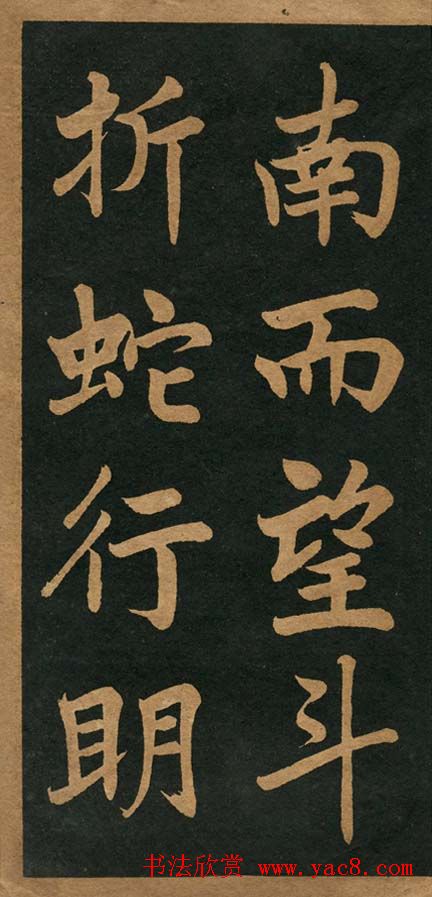 南而望斗
折蛇行明
书法欣赏 www.yac8.com